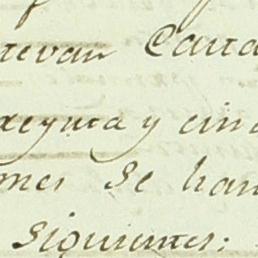 tevan Carta
treynta y cinc
mes se han
siguientes: